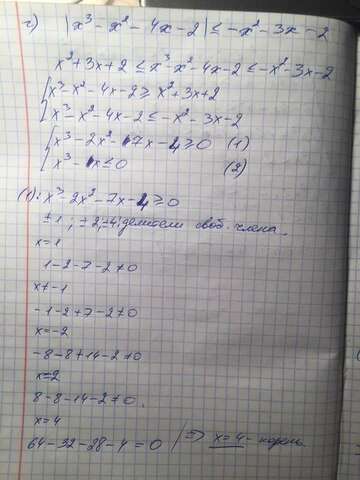 г) |x³ - x² - 4x - 2| ≤ -x² - 3x - 2
x² + 3x + 2 ≤ x³ - x² - 4x - 2 ≤ -x² - 3x - 2
{ x³ - x² - 4x - 2 ≥ x² + 3x + 2
x³ - x² - 4x - 2 ≤ -x² - 3x - 2
{ x³ - 2x² - 7x - 4 ≥ 0 (1)
x³ - x ≤ 0 (2)
(1): x³ - 2x² - 7x - 4 ≥ 0
±1; ±2; ±4 делители своб. члена
x = 1
1 - 2 - 7 - 2 ≠ 0
x ≠ -1
-1 - 2 + 7 - 2 ≠ 0
x = -2
-8 - 8 + 14 - 2 ≠ 0
x = 2
8 - 8 - 14 - 2 ≠ 0.
x = 4
64 - 32 - 28 - 4 = 0 | ⇒ x = 4 - корень